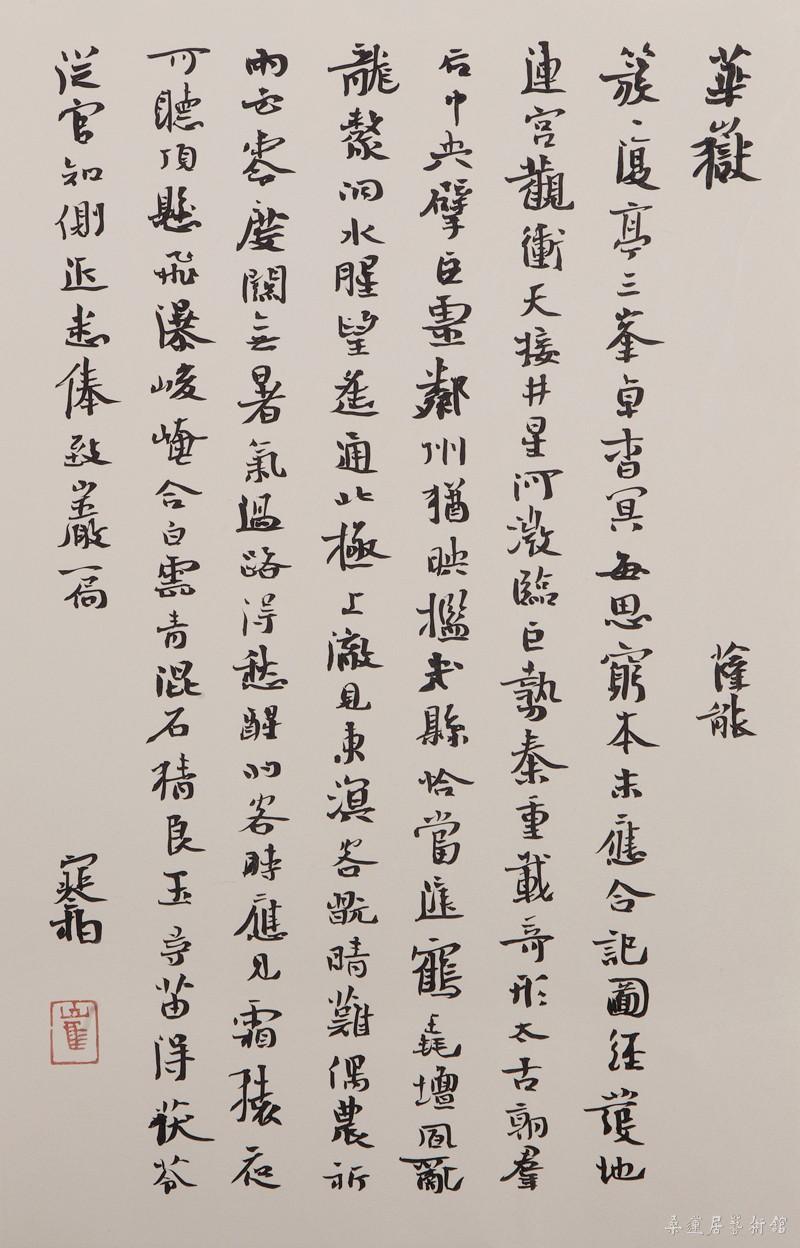 華嶽
薛能
簇〻復亭〻三峯卓杳冥每思窮本末應合記圖經發地
連宮觀衝天接井星河微臨巨勢秦重載奇形太古朝羣
后中央擘巨靈鄰州猶映檻幾縣恰當庭鶴毳壇風亂
龍漦洞水腥望遙通北極上澈見東溟客翫晴難偶農祈
雨必零度關無暑氣過路得愁醒羽客時應見霜猿夜
可聽頂懸飛瀑峻崦合白雲青混石猜良玉尋苗得茯苓
從官知側近悉俸致巖扃
桑蓮居藝術館